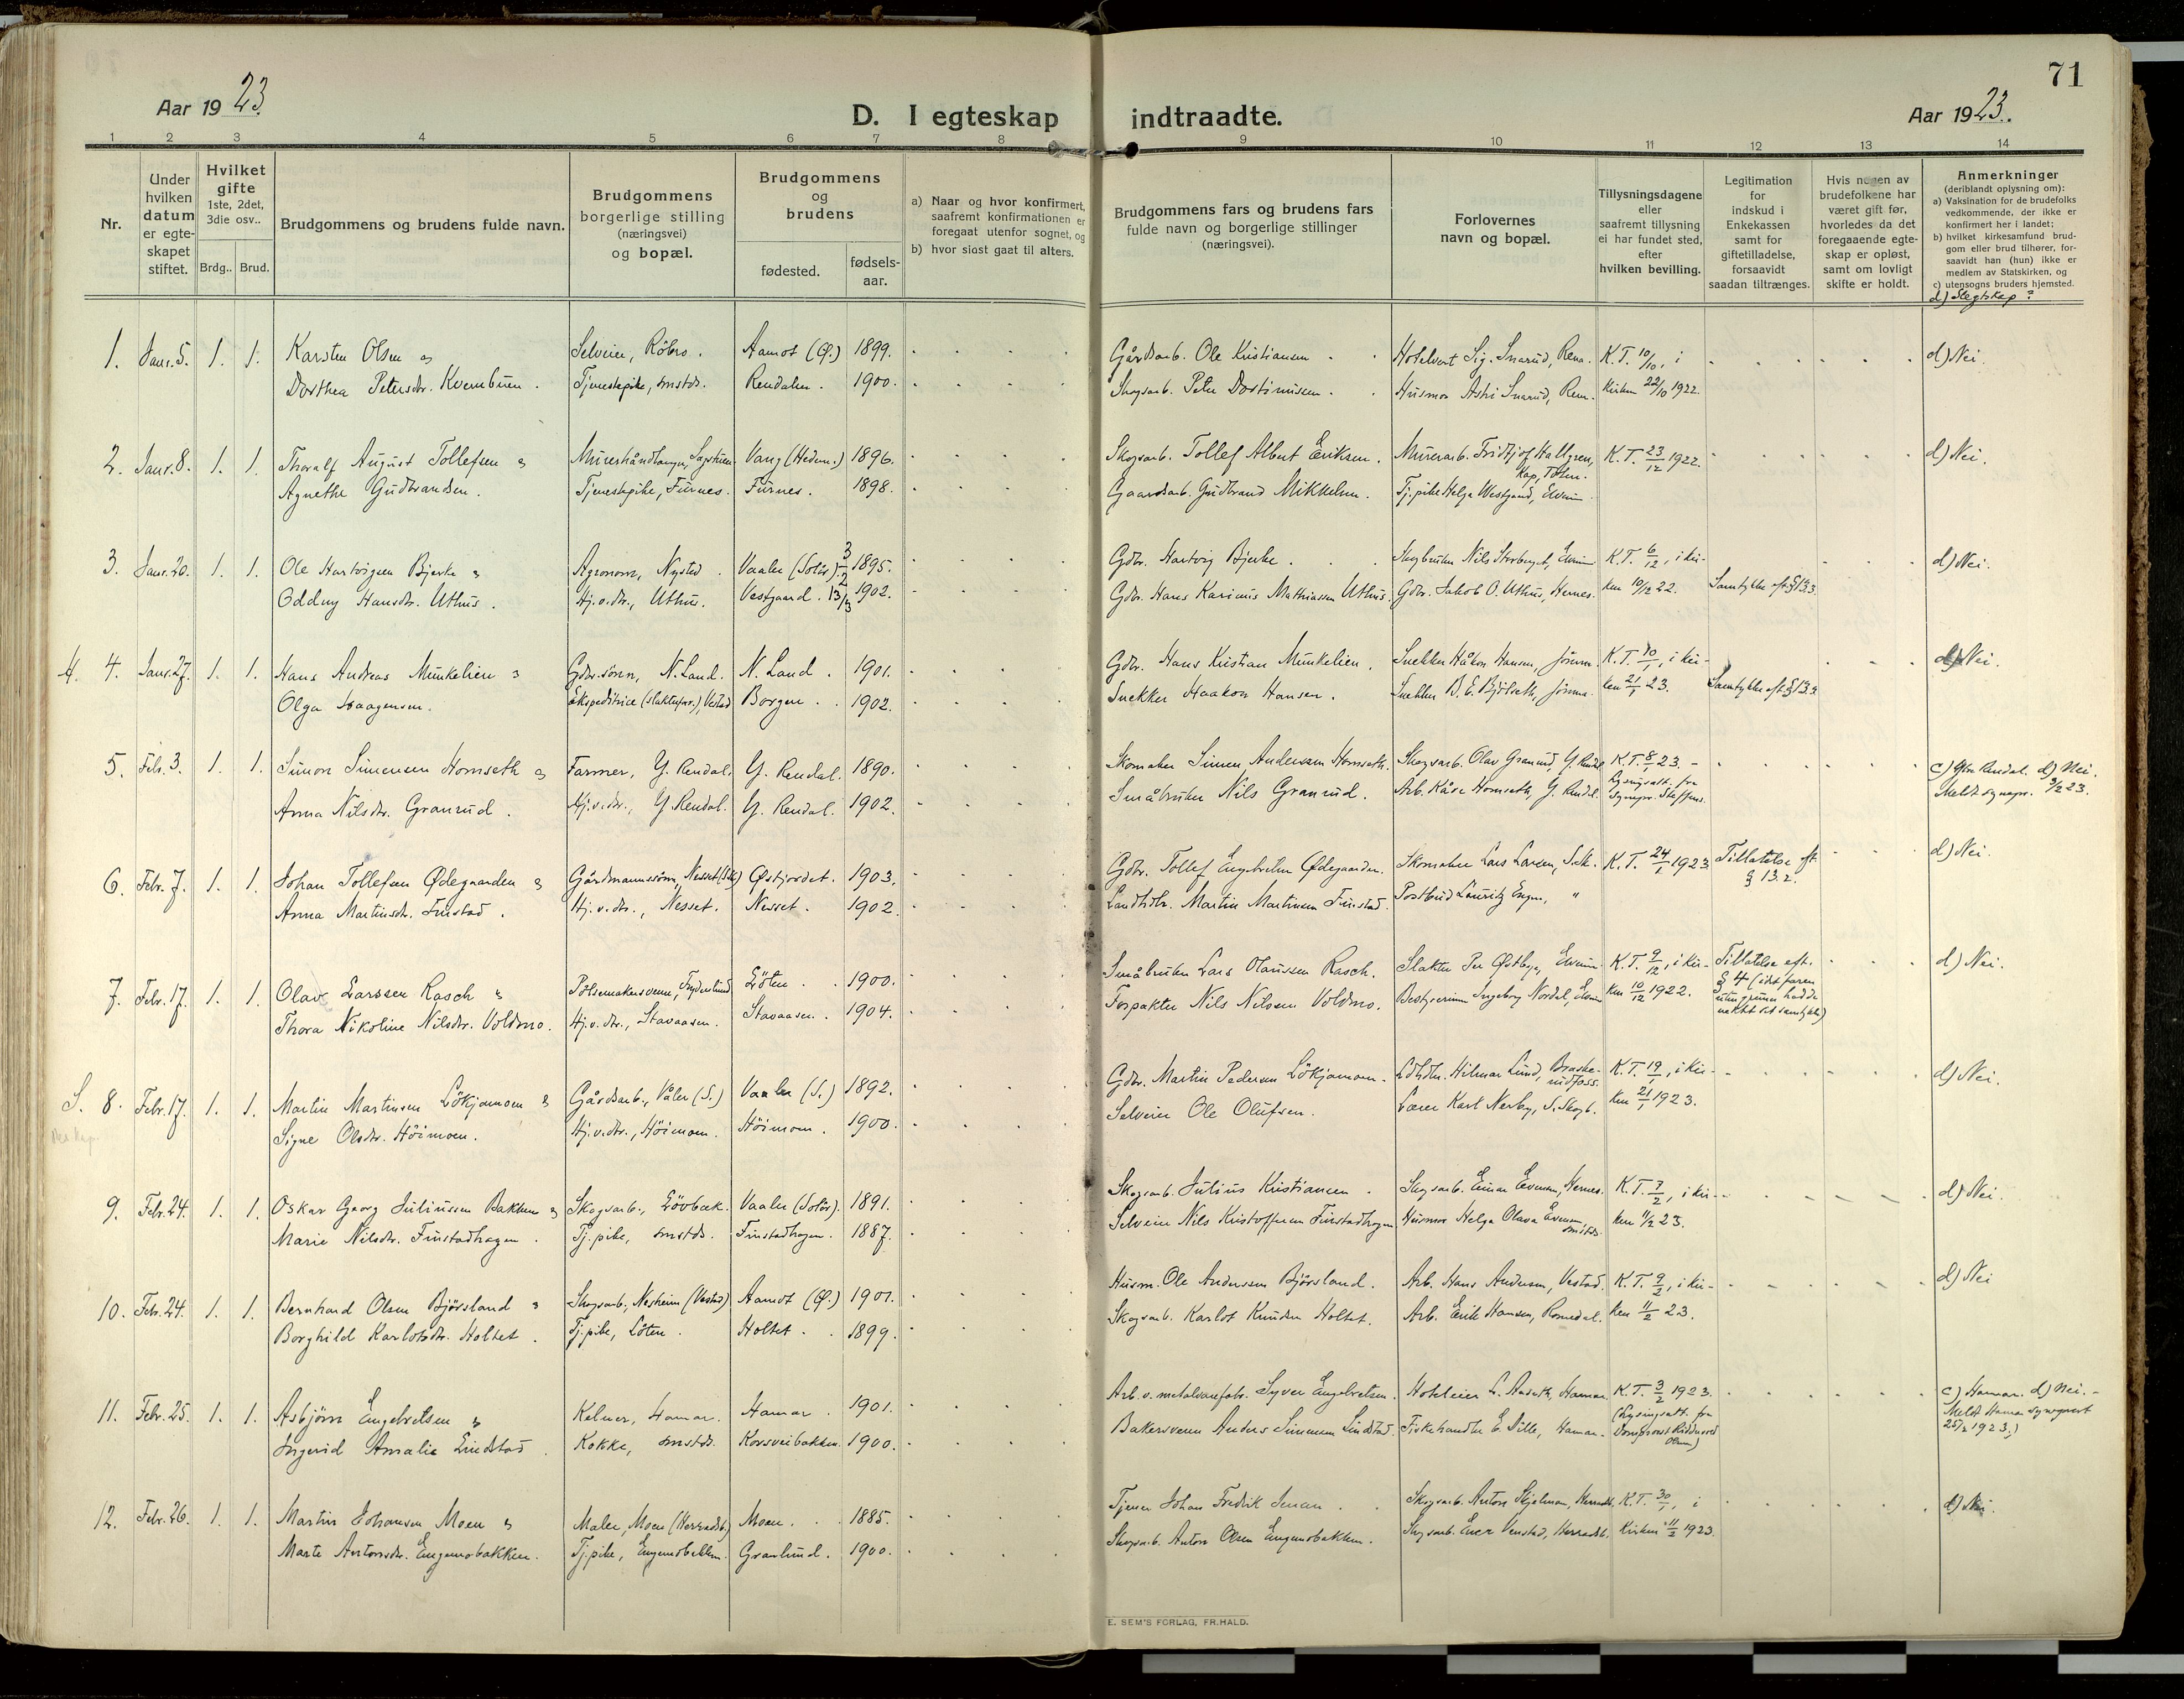 71
Aar 1923.
D. I egteskap indtraadte.
Aar 1923.
1 2 3 4 5 6 7 8 9 10 11 12 13 14
Nr.
Under
hvilken
datum
er egte-
skapet
stiftet.
Hvilket
gifte
1ste, 2det,
3die osv..
Brdg.. Brud.
Brudgommens og brudens fulde navn.
Brudgommens
borgerlige stilling
(næringsvei)
og bopæl.
Brudgommens
og
brudens
fødested.
fødsels-
aar.
a) Naar og hvor konfirmert,
saafremt konfirmationen er
foregaat utenfor sognet, og
b) hvor sidst gaat til alters.
Brudgommens fars og brudens fars
fulde navn og borgerlige stillinger
(næringsvei).
Forlovernes
navn og bopæl.
Tillysningsdagene
eller
saafremt tillysning
ei har fundet sted,
efter
hvilken bevilling.
Legitimation
for
indskud i
Enkekassen
samt for
giftetilladelse,
forsaavidt
saadan tiltrænges.
Hvis nogen av
brudefolkene har
været gift før,
hvorledes da det
foregaaende egte-
skap er opløst,
samt om lovligt
skifte er holdt.
Anmerkninger
(deriblandt oplysning om):
a) Vaksination for de brudefolks
vedkommende, der ikke er
konfirmert her i landet;
b) hvilket kirkesamfund brud-
gom eller brud tilhører, for-
saavidt han (hun) ikke er
medlem av Statskirken, og
c) utensogns bruders hjemsted.
d) Slegtskap?
1. Janr. 5. 1. 1. Karsten Olsen og Selveier, Röbro. Aamot (Ø.) 1899. Gårdsarb. Ole Kristiansen. Hotelvert Sig. Snarud, Rena. K. T. 10/10, i d) Nei.
Dorthea Petersdr. Kvernbuen. Tjenestepike, smstds. Rendalen. 1900. Skogsarb. Peter Dortinusen. Husmor Astri Snarud, Rena. kirken 22/10 1922.
2. Janr. 8. 1. 1. Thoralf August Tollefsen og Murerhåndlanger, Sagstuen. Vang (Hedem.) 1896. Skogsarb. Tollef Albert Eriksen. Murerarb. Fridtjof Hallgren, K. T. 23/12 1922. d) Nei.
Kap, Toten.
Agnethe Gudbrandsen. Tjenestepike, Furnes. Furnes. 1898. Gaardsarb. Gudbrand Mikkelsen. Tj. pike Helga Westgaard, Elverum.
3. Janr. 20. 1. 1. Ole Hartvigsen Bjerke og Agronom, Nysted. Vaaler (Solör) 3/2 1895. Gdbr. Hartvig Bjerke. Skogbruker Nils Storberget, Elverum K. T. 6/12, i kir- d) Nei.
Oddny Hansdr. Uthus. Hj. v. dtr., Uthus. Vestgaard. 13/3 1902. Gdbr. Hans Karinus Mathiassen Uthus. Gdbr. Jakob O. Uthus, Hernes. ken 10/12 22. Samtykke eft. § 13.3.
4. Janr. 27. 1. 1. Hans Andreas Munkelien og Gdbr. sönn, N. Land. N. Land. 1901. Gdbr. Hans Kristian Munkelien. Snekker Håkon Hansen, Jömna. K. T. 10/1, i kir- d) Nei.
Olga Haagensen. Ekspeditrice (slakteforr.), Vestad Borgen. 1902. Snekker Haakon Hansen. Snekker B. E. Björseth, Jömna. ken 21/1 23. Samtykke eft. § 13.2
5. Febr. 3. 1. 1. Simon Simensen Homseth og Farmer, Y. Rendal. Y. Rendal. 1890. Skomaker Simen Andersen Homseth. Skogsarb. Olav Granrud, Y. Rendal K. T. 8/1 23. - c) Ytre Rendal. d) Nei.
Anna Nilsdtr. Granrud. Hj. v. dtr., Y. Rendal. Y. Rendal. 1902. Småbruker Nils Granrud. Arb. Kåre Homseth, Y. Rendal. Lysingsatt. fra
Sognepr. Steffens. Meldt sognepr. 3/2 23.
6. Febr. 7. 1. 1. Johan Tollefsen Ødegaarden og Gårdmannssönn, Nesset Østjordet. 1903. Gdbr. Tollef Engebretsen Ødegaarden. Skomaker Lars Larsen, K. T. 24/1 1923 Tillatelse eft. d) Nei.
§ 13.2.
Anna Martinsdr. Finstad. Hj. v. dtr., Nesset. Nesset. 1902. Landhdlr. Martin Martinsen Finstad. Postbud Lauritz Engen, "
7. Febr. 17. 1. 1. Olav Larssen Rasch og Pölsemakersvenn, Frydenlund Löten. 1900. Småbruker Lars Olaussen Rasch. Slakter Per Østbye, Elverum K. T. 9/12, i kir- Tillatelse eft. d) Nei.
Thora Nikoline Nilsdr. Voldmo. Hj. v. dtr., Stavaasen. Stavaasen. 1904. Forpakter Nils Nilssen Voldmo. Bestyrerinne Ingeborg Nordal, Elverum ken 10/12 1922. § 4 (idet faren
uten grunn hadde
nektet sit samtykke)
S. 8. Febr. 17. 1. 1. Martin Martinsen Lökjamoen og Gårdsarb., Våler (S.) Vaaler (S.) 1892. Gdbr. Martin Pedersen Lökjamoen. Ldhdlr. Hilmar Lund, Braske- K. T. 19/1, i kir- d) Nei.
reidfoss.
Signe Olsdtr. Höimoen. Hj. v. dtr., Höimoen. Höimoen. 1900. Selveier Ole Olufsen. Lærer Karl Nerby, S. Skogb. ken 21/1 1923.
9. Febr. 24. 1. 1. Oskar Georg Juliussen Bakken og Skogsarb., Lövbæk. Vaaler (Solör). 1891. Skogsarb. Julius Kristiansen. Skogsarb. Einar Evensen, Hernes. K. T. 7/2, i kir- d) Nei.
Marie Nilsdtr. Finstadhagen. Tj. pike, smstds. Finstadhagen. 1887. Selveier Nils Kristoffersen Finstadhagen Husmor Helga Olava Evensen, ken 11/2 23.
smstds.
10. Febr. 24. 1. 1. Bernhard Olsen Björsland og Skogsarb., Nesheim (Vestad) Aamot (Ø.) 1901. Husm. Ole Andersen Björsland. Arb. Hans Andersen, Vestad. K. T. 9/2, i kir- d) Nei
Borghild Karlotsdr. Holtet. Tj. pike, Löten. Holtet. 1899. Skogsarb. Karlot Knudsen Holtet. Arb. Erik Hansen, Romedal. ken 11/2 23.
11. Febr. 25. 1. 1. Asbjörn Engebretsen og Kelner, Hamar. Hamar. 1901. Arb. v. metalvarefabr. Syver Engebretsen. Hoteleier L. Aaseth, Hamar. K. T. 3/2 1923. c) Hamar. d) Nei. -
Ingerid Amalie Lindstad. Kokke, smstds. Korsveibakken. 1900. Bakersvenn Anders Simensen Lindstad. Fiskehandler E. Dille, Hamar. (Lysingsatt. fra
Domprost Riddervold
Olsen) Meldt Hamar sogneprest
25/2 1923.)
12. Febr. 26. 1. 1. Martin Johansen Moen og Maler, Moen (Herradsb.) Moen. 1885. Tjener Johan Fredrik Jensen. Skogsarb. Anton Skjelman, Herradsb. K. T. 30/1, i d) Nei.
Marte Antonsdtr. Engemobakken. Tj. pike, Engemobakken. Granlund. 1900. Skogsarb. Anton Olsen Engemobakken. Skogsarb. Einar Venstad, Herradsb. kirken 11/2 1923.
E. SEM'S FORLAG, FR.HALD.